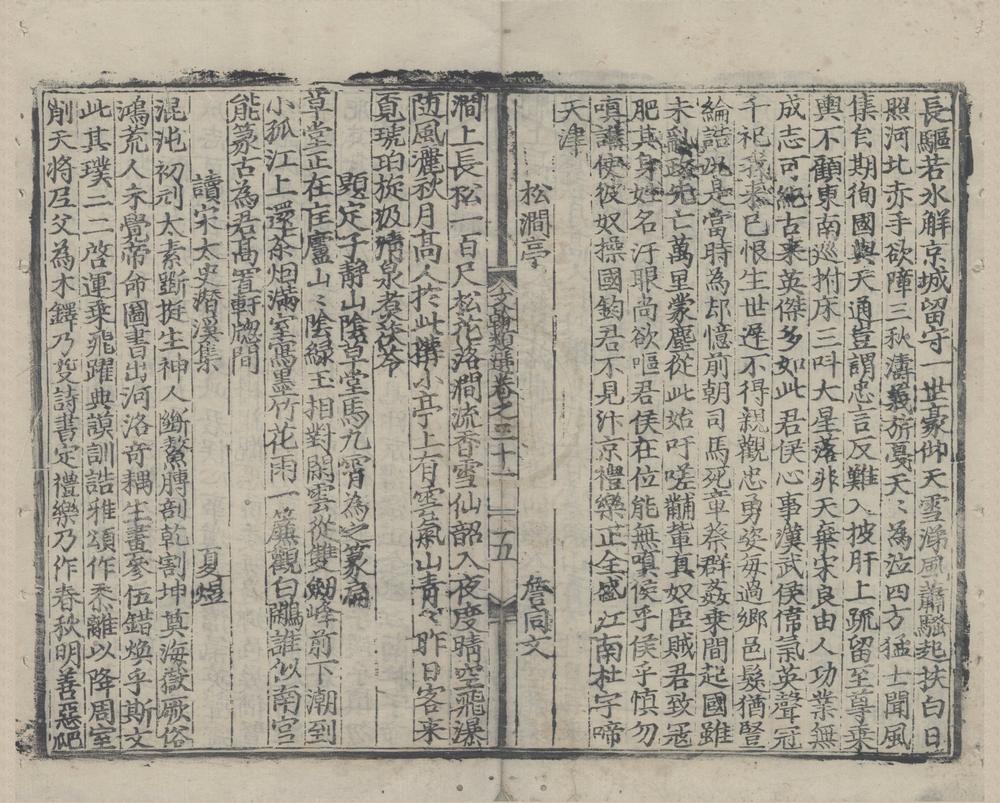 長驅若氷解京城留守一世豪仰天雪涕風蕭騷起扶白日
照河北赤手欲障三秋濤義旂戞天〻為泣四方猛士聞風
集台期徇國與天通豈謂忠言反難入披肝上疏留至尊乗
輿不顧東南巡拊床三叫大星落非天棄宋良由人功業無
成志可絶古来英傑多如此君侯心事漢武侯常氣英聲冠
千祀我来已恨生世遅不得親觀忠勇姿毋過鄉邑髮猶竪
綸誥如是當時為却憶前朝司馬死章蔡群姦乗間起國雖
未亂政先亡萬里蒙塵從此始吁嗟黼輩真奴臣賊君致冦
肥其身姓名汙眼尚欲嘔君侯在位能無嗔侯乎侯乎慎勿
嗔請使彼奴操國鈞君不見汴京禮樂正全盛江南杜宇啼
天津
松澗亭 詹同文
文翰類選卷之三十一 十五
澗上長松一百尺松花落澗流香雪仙韶入夜度晴空飛瀑
随風灑秋月高人扵此搆小亭上有雲氣山青〻昨日客来
覔琥珀旋汲清泉煑茯苓
顯定子静山隂草堂馬九霄為之篆扁
草堂正在匡廬山〻隂緑玉相對閑雲從雙劒峰前下潮到
小孤江上還茶烟滿室寫墨竹花雨一簾觀白鷴誰似南宫
能篆古為君髙置軒牕間
讀宋太史潛溪集 夏煜
混沌初判太素斲挺生神人斷鰲膊剖乾割坤奠海嶽厥俗
鴻荒人未覺帝命圖書出河洛竒耦生畫參伍錯煥乎斯文
此其璞二二啓運乗飛躍典謨訓誥雅頌作黍離以降周室
削天將尼父為木鐸乃夋詩書定禮樂乃作春秋明善惡